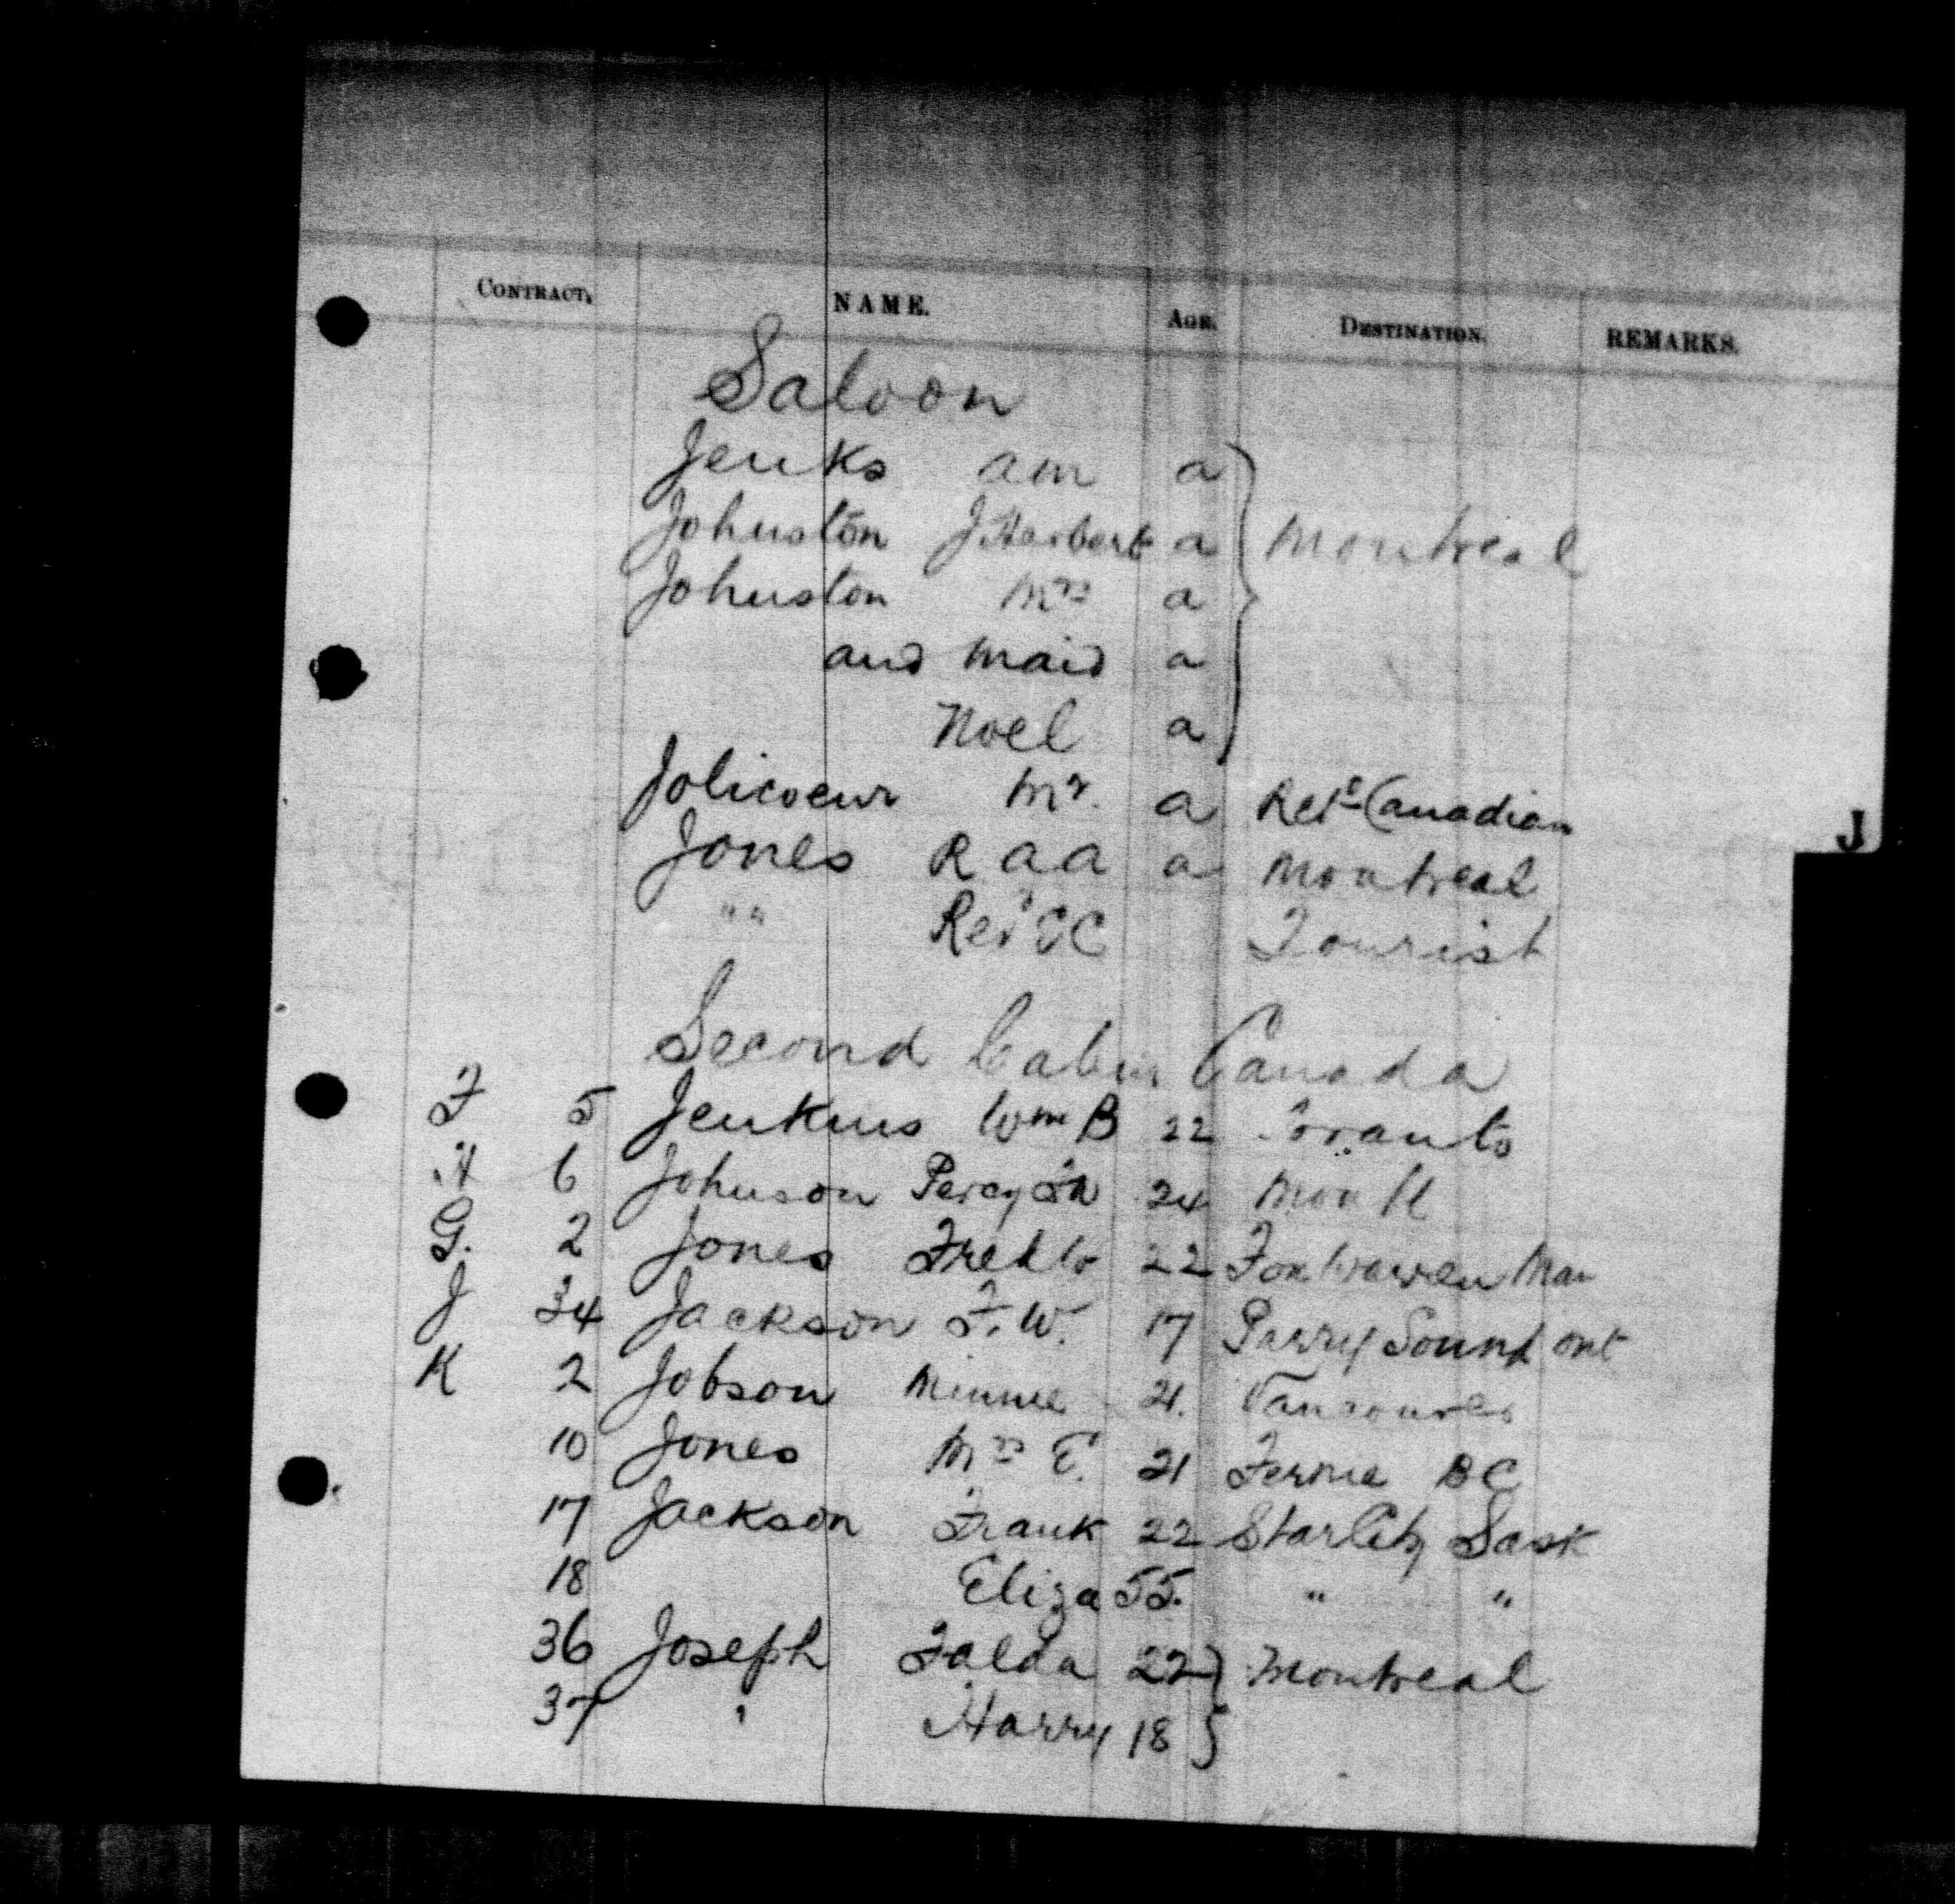 CONTRACT. NAME. AGE. DESTINATION. REMARKS.
Saloon
Jenks am a
Johnston J Herbert a Montreal
Johnston Mrs a
and maid a
Noel a
Jolicoeur Mr. a Retd Canadian
J
Jones R a a a Montreal
" " Revd E C Tourist
Second Cabin Canada
F 5 Jenkins Wm B 22 Toronto
H 6 Johnson Percy 24 Mon tl
G. 2 Jones 22 Foxwarren Man
J 34 Jackson F. W. 17 Parry Sound ont
K 2 Jobson Minnie 21. Vancouver
10 Jones Mrs E. 21 Fernie BC
17 Jackson Frank 22 Star City Sask
18 Eliza 55. " "
36 Joseph Falda 22 Montreal
37 " Harry 18